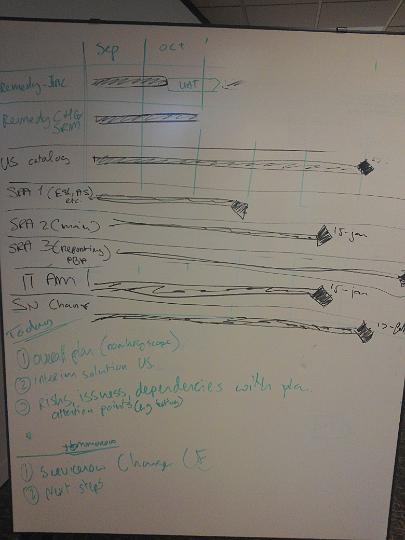 Sep oct
Remedy-Inc UAT
Remedy CHG
SRM
US catalog
SRA 1 (
etc.
SRA 2 (main) 15-jan
SRA 3 (Reporting
IT Am 1 15-jan
SN Change
Today
① overall plan (roadmap, scope)
② interim solution US
③ Risks, issues, dependencies with plan
attention points (e.g
Tomorrow
① Servicenow Change (
② Next steps